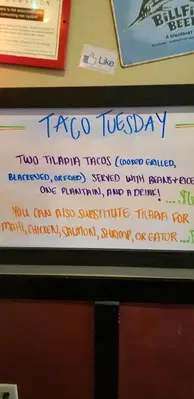 BILLFISH
BEER
Like
TACO TUESDAY
TWO TILAPIA TACOS (COOKED GRILLED,
BLACKENED, OR FRIED) SERVED WITH BEANS + RICE
ONE PLANTAIN, AND A DRINK!
....$6
YOU CAN ALSO SUBSTITUTE TILAPIA FOR
MAHI, CHICKEN, SALMON, SHRIMP, OR GATOR ...$